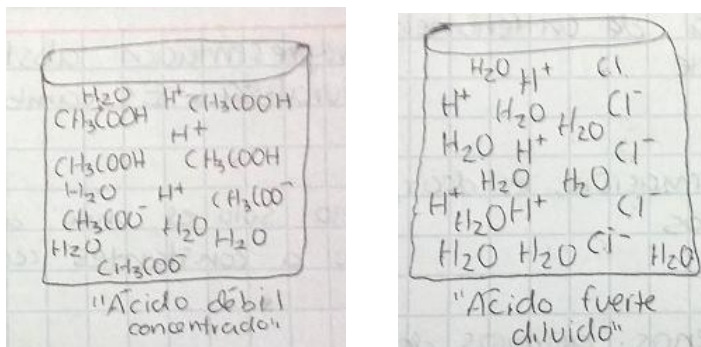 H2O H+ CH3COOH
CH3COOH
H+
CH3COOH CH3COOH
H2O H+ CH3COO-
CH3COO- H2O H2O
H2O
CH3COO-
"Ácido débil
concentrado"
H2O H+ Cl
H+ H2O Cl-
H2O
H2O H+ Cl-
H2O H2O
H+ H2O H+ Cl-
H2O H2O Cl- H2O
"Ácido fuerte
diluido"